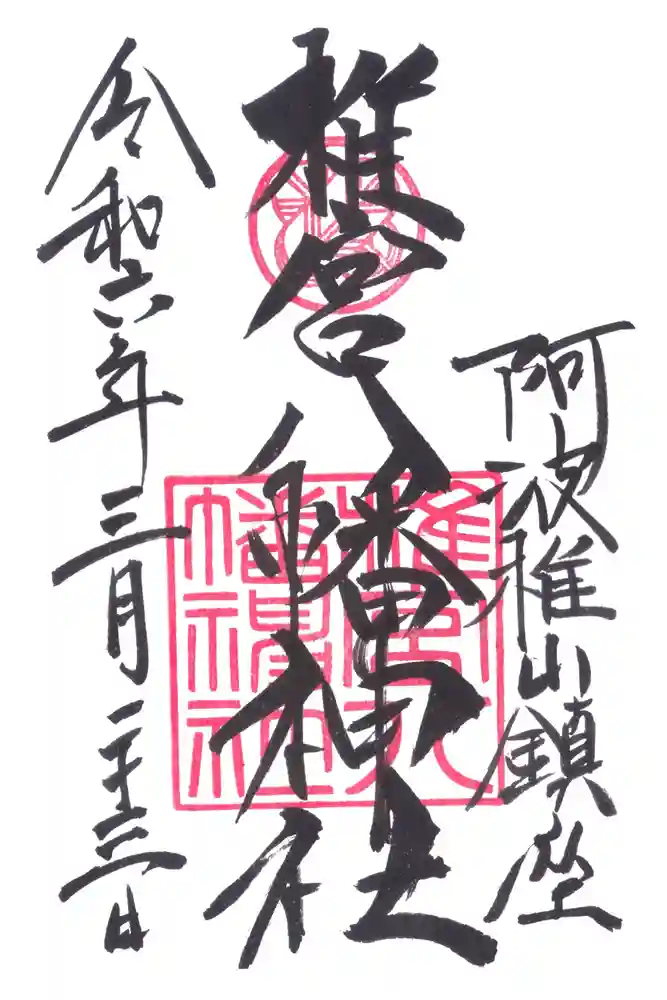 阿波椎山鎮座
椎宮八幡神社
令和六年三月二十三日
椎宮八
幡神社